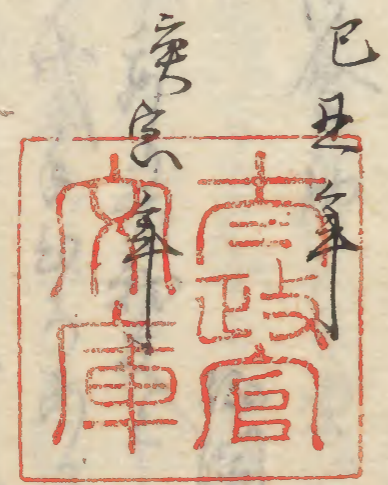 己丑年
庚寅年
太政官
文庫